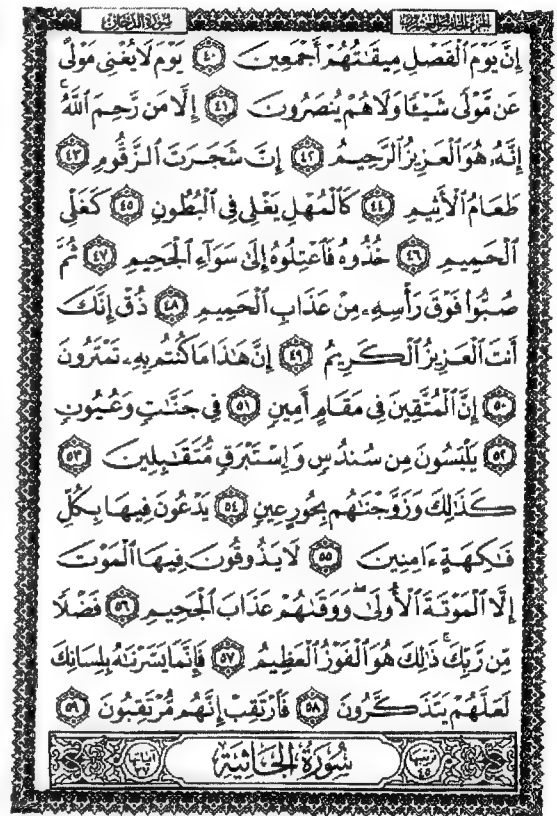 الجزء الخامس والعشرون
سورة الدخان
إِنَّ يَوْمَ ٱلْفَصْلِ مِيقَـٰتُهُمْ أَجْمَعِينَ ٤٠ يَوْمَ لَا يُغْنِى مَوْلًى
عَن مَّوْلًى شَيْـًٔا وَلَا هُمْ يُنصَرُونَ ٤١ إِلَّا مَن رَّحِمَ ٱللَّهُ ۚ
إِنَّهُۥ هُوَ ٱلْعَزِيزُ ٱلرَّحِيمُ ٤٢ إِنَّ شَجَرَتَ ٱلزَّقُّومِ ٤٣
طَعَامُ ٱلْأَثِيمِ ٤٤ كَٱلْمُهْلِ يَغْلِى فِى ٱلْبُطُونِ ٤٥ كَغَلْىِ
ٱلْحَمِيمِ ٤٦ خُذُوهُ فَٱعْتِلُوهُ إِلَىٰ سَوَآءِ ٱلْجَحِيمِ ٤٧ ثُمَّ
صُبُّوا۟ فَوْقَ رَأْسِهِۦ مِنْ عَذَابِ ٱلْحَمِيمِ ٤٨ ذُقْ إِنَّكَ
أَنتَ ٱلْعَزِيزُ ٱلْكَرِيمُ ٤٩ إِنَّ هَـٰذَا مَا كُنتُم بِهِۦ تَمْتَرُونَ
٥٠ إِنَّ ٱلْمُتَّقِينَ فِى مَقَامٍ أَمِينٍ ٥١ فِى جَنَّـٰتٍ وَعُيُونٍ
٥٢ يَلْبَسُونَ مِن سُندُسٍ وَإِسْتَبْرَقٍ مُّتَقَـٰبِلِينَ ٥٣
كَذَٰلِكَ وَزَوَّجْنَـٰهُم بِحُورٍ عِينٍ ٥٤ يَدْعُونَ فِيهَا بِكُلِّ
فَـٰكِهَةٍ ءَامِنِينَ ٥٥ لَا يَذُوقُونَ فِيهَا ٱلْمَوْتَ
إِلَّا ٱلْمَوْتَةَ ٱلْأُولَىٰ ۖ وَوَقَىٰهُمْ عَذَابَ ٱلْجَحِيمِ ٥٦ فَضْلًا
مِّن رَّبِّكَ ۚ ذَٰلِكَ هُوَ ٱلْفَوْزُ ٱلْعَظِيمُ ٥٧ فَإِنَّمَا يَسَّرْنَـٰهُ بِلِسَانِكَ
لَعَلَّهُمْ يَتَذَكَّرُونَ ٥٨ فَٱرْتَقِبْ إِنَّهُم مُّرْتَقِبُونَ ٥٩
ترتيبها ٤٥
سُورَةُ الجَاثِيَة
آياتها ٣٧